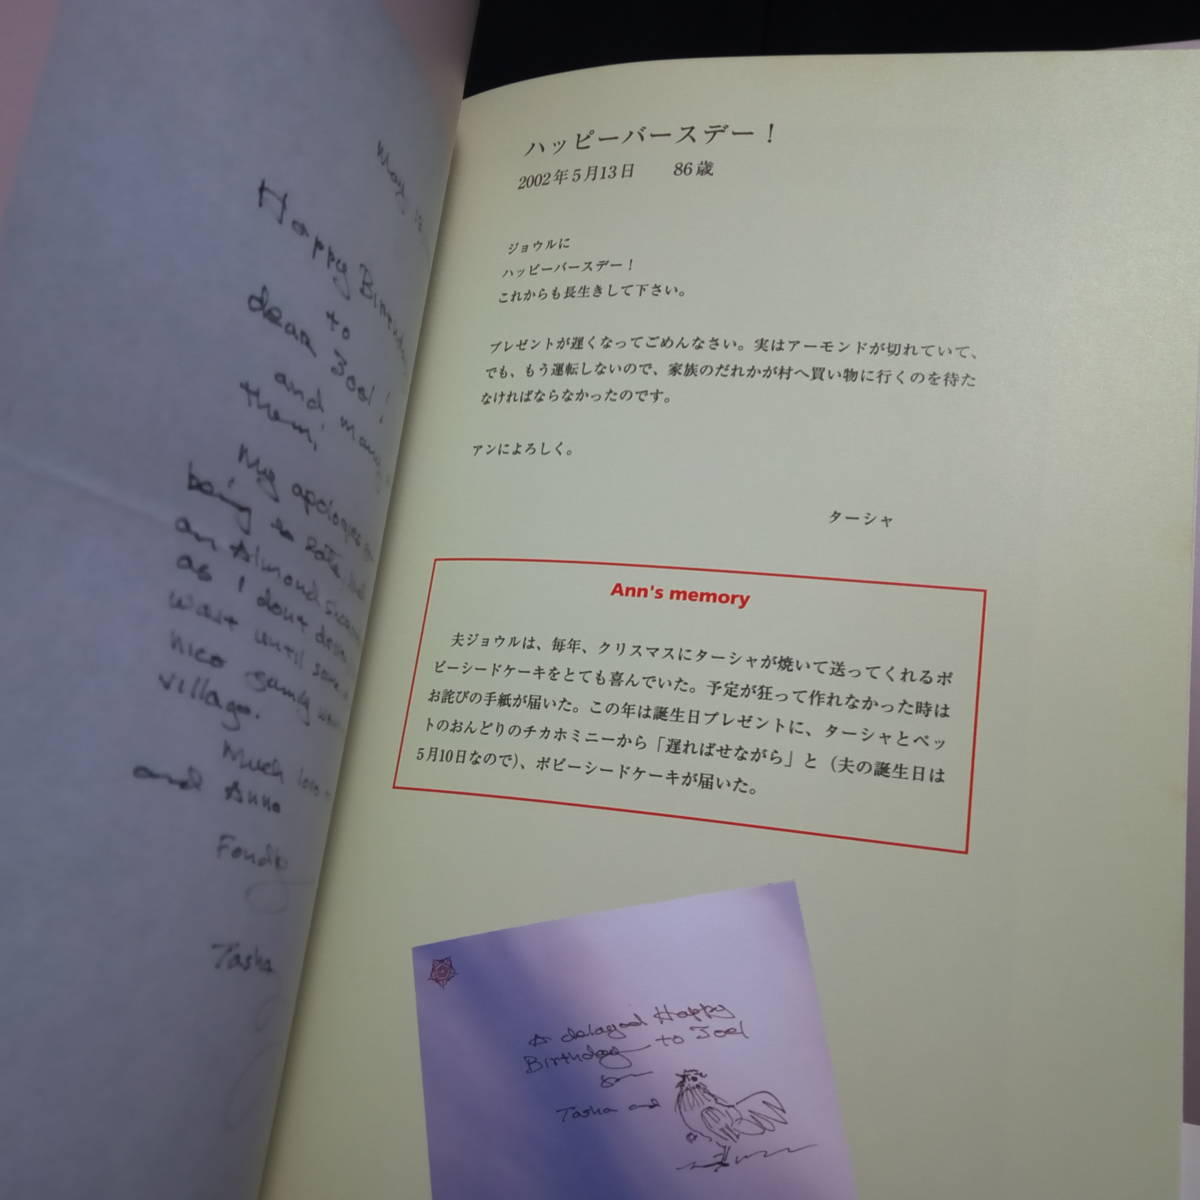 May
Happy
to
dear Joel!
and many
them,
My apologies
being so late
an Almond
as I dont
wait until
nice family
village.
Much love
and Anne
Tasha
ハッピーバースデー！
2002年5月13日 86歳
ジョウルに
ハッピーバースデー！
これからも長生きして下さい。
プレゼントが遅くなってごめんなさい。実はアーモンドが切れていて、
でも、もう運転しないので、家族のだれかが村へ買い物に行くのを待た
なければならなかったのです。
アンによろしく。
ターシャ
Ann's memory
夫ジョウルは、毎年、クリスマスにターシャが焼いて送ってくれるポ
ピーシードケーキをとても喜んでいた。予定が狂って作れなかった時は
お詫びの手紙が届いた。この年は誕生日プレゼントに、ターシャとペッ
トのおんどりのチカホミニーから「遅ればせながら」と（夫の誕生日は
5月10日なので）、ポピーシードケーキが届いた。
A delayed Happy
Birthday to Joel
Tasha and